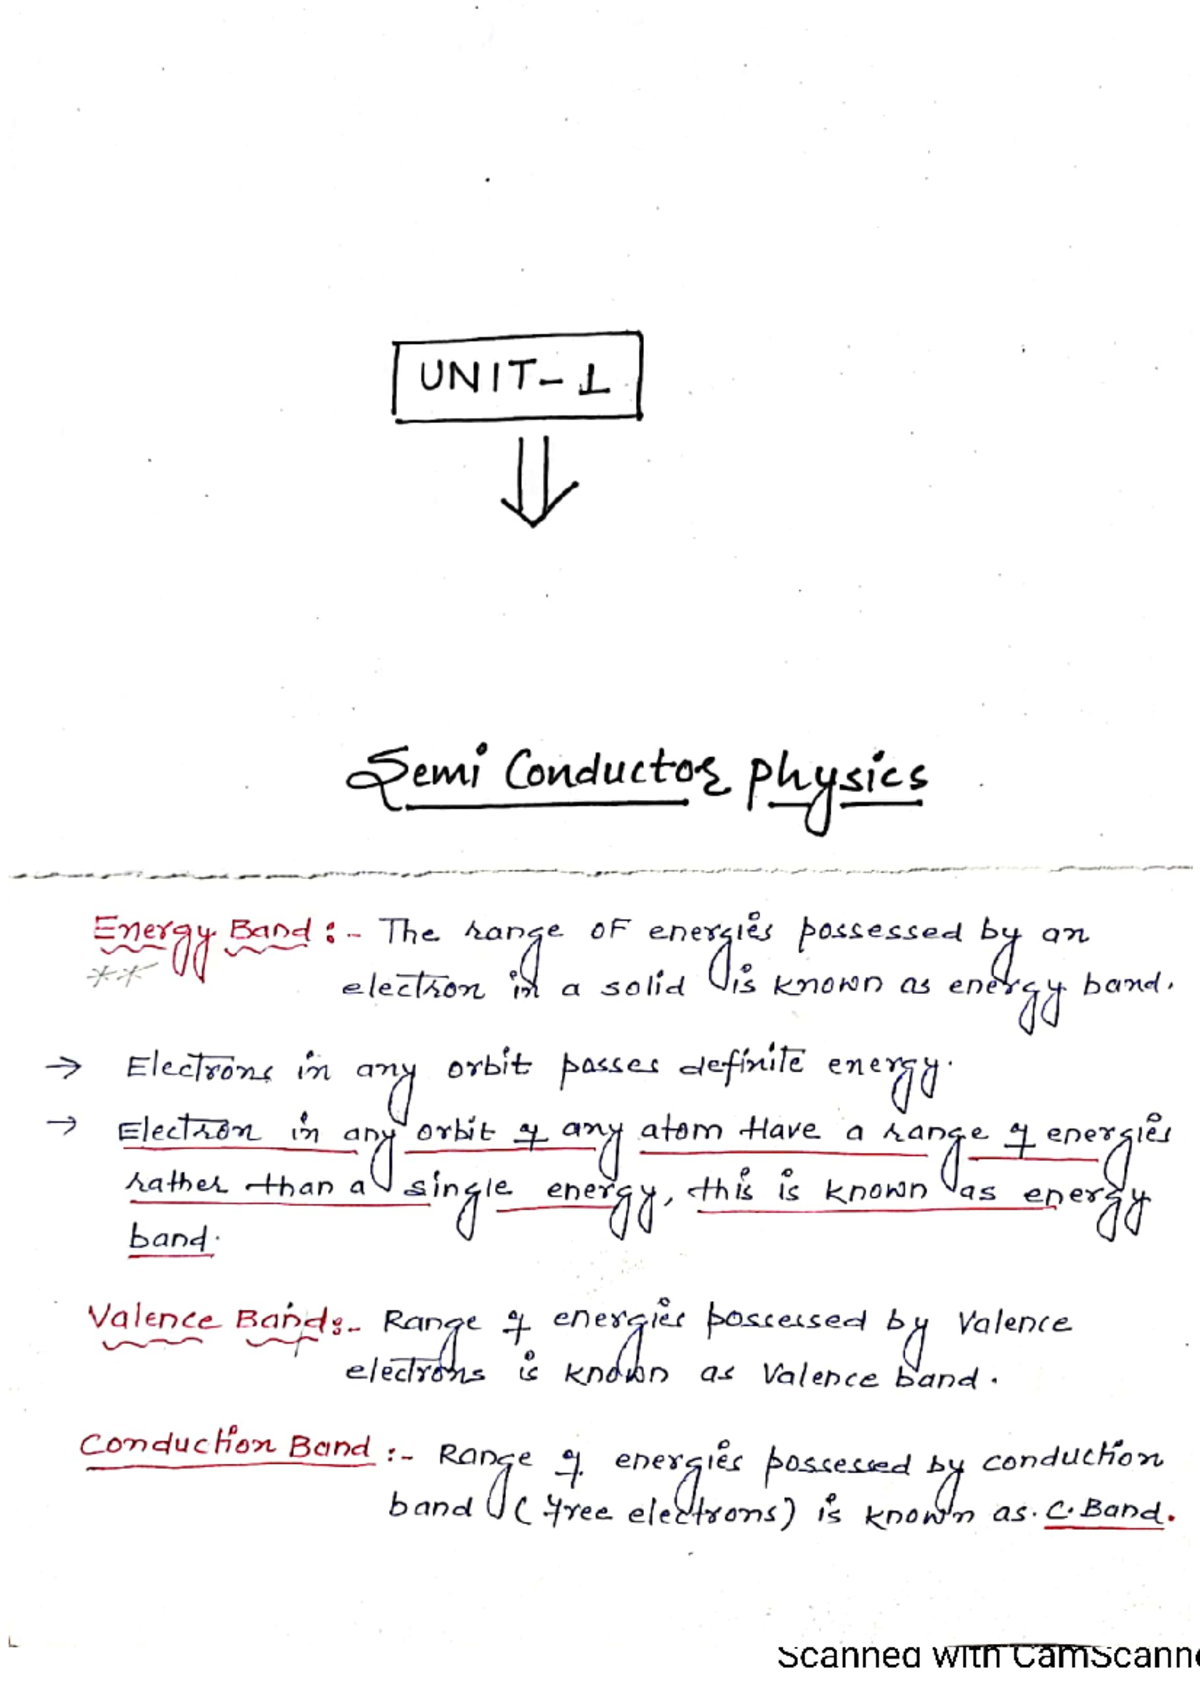 UNIT-1
Semi Conductor physics
Energy Band :- The range of energies possessed by an
**
electron in a solid is known as energy band.
→ Electrons in any orbit posses definite energy.
→ Electron in any orbit of any atom Have a range of energies
rather than a single energy, this is known as energy
band.
Valence Band:- Range of energies possessed by Valence
electrons is known as Valence band.
Conduction Band :- Range of energies possessed by conduction
band (free electrons) is known as C. Band.
Scanned with CamScanne